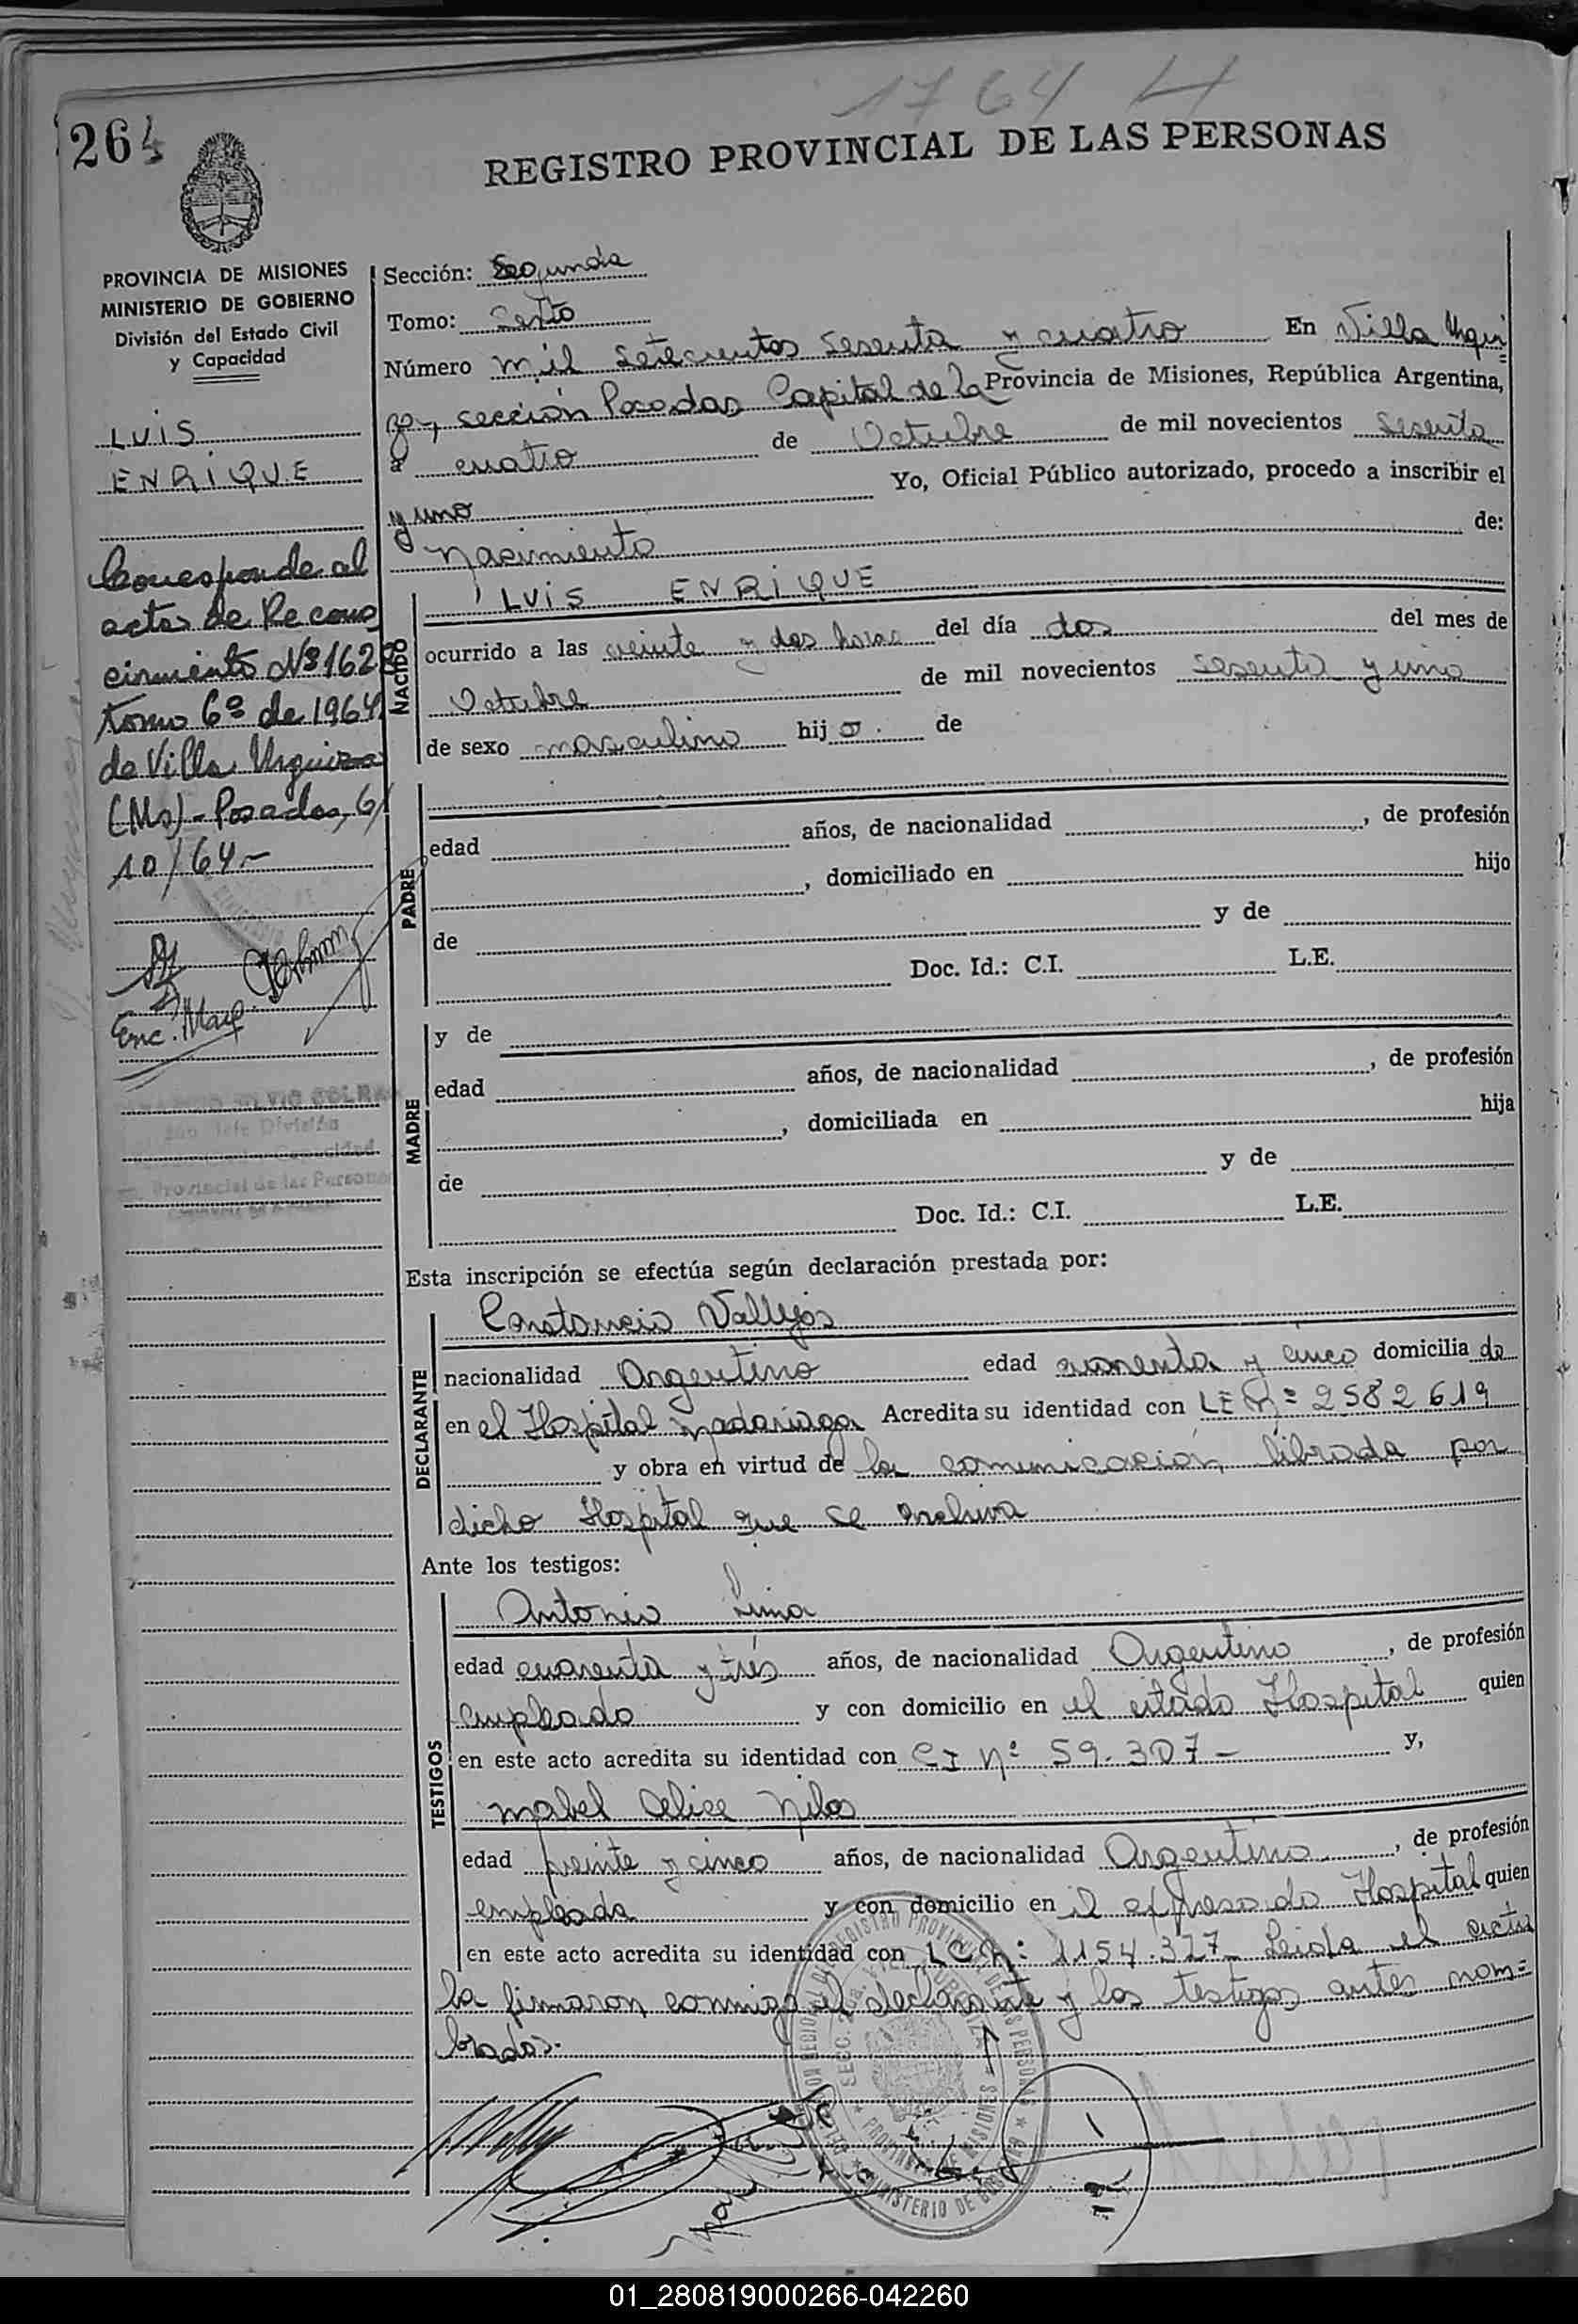 1764
264
REGISTRO PROVINCIAL DE LAS PERSONAS
PROVINCIA DE MISIONES
MINISTERIO DE GOBIERNO
División del Estado Civil
y Capacidad
LUIS
ENRIQUE
Corresponde al
acta de Recono
cimiento Nº 162
tomo 6º de 1964
de Villa Urquiza
(Ms) - Posadas, 6/
10/64.-
Enc. 
Sección: Segunda
Tomo: Sexto
Número mil setecientos sesenta y cuatro En Villa Urqui=
za, sección Posadas Capital de la Provincia de Misiones, República Argentina,
a cuatro de Octubre de mil novecientos sesenta
y uno Yo, Oficial Público autorizado, procedo a inscribir el
nacimiento de:
NACIDO
LUIS ENRIQUE
ocurrido a las veinte y dos horas del día dos del mes de
Octubre de mil novecientos sesenta y uno
de sexo masculino hijo. de
PADRE
edad años, de nacionalidad , de profesión
, domiciliado en hijo
de y de
Doc. Id.: C.I. L.E.
MADRE
y de
edad años, de nacionalidad , de profesión
, domiciliada en hija
de y de
Doc. Id.: C.I. L.E.
Esta inscripción se efectúa según declaración prestada por:
DECLARANTE
Constancio Vallejos
nacionalidad Argentino edad cuarenta y cinco domiciliado
en el Hospital Madariaga Acredita su identidad con LE Nº 2582619
y obra en virtud de la comunicación librada por
dicho Hospital que se archiva
Ante los testigos:
TESTIGOS
Antonio Lima
edad cuarenta y tres años, de nacionalidad Argentino, de profesión
empleado y con domicilio en el citado Hospital quien
en este acto acredita su identidad con CI Nº 59.307- y,
Mabel Alice
edad veinte y cinco años, de nacionalidad Argentina, de profesión
empleada y con domicilio en el expresado Hospital quien
en este acto acredita su identidad con LC Nº 1154.327 Leida el acta
la firmaron conmigo el declarante y los testigos antes nom=
brados.
01_280819000266-042260